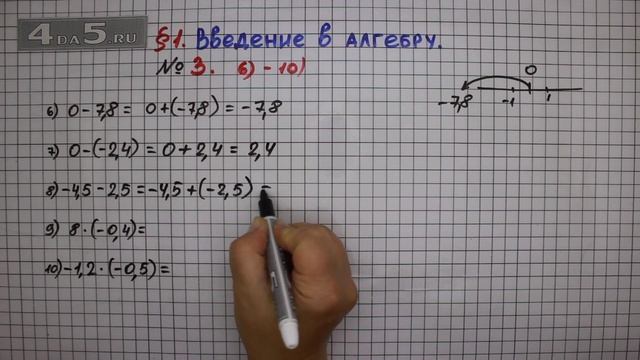 4DA5.RU
§1. Введение в алгебру.
№3. 6) - 10)
6) 0 - 7,8 = 0 + (-7,8) = -7,8
7) 0 - (-2,4) = 0 + 2,4 = 2,4
8) -4,5 - 2,5 = -4,5 + (-2,5) =
9) 8 · (-0,4) =
10) -1,2 · (-0,5) =
0
-7,8 -1 1